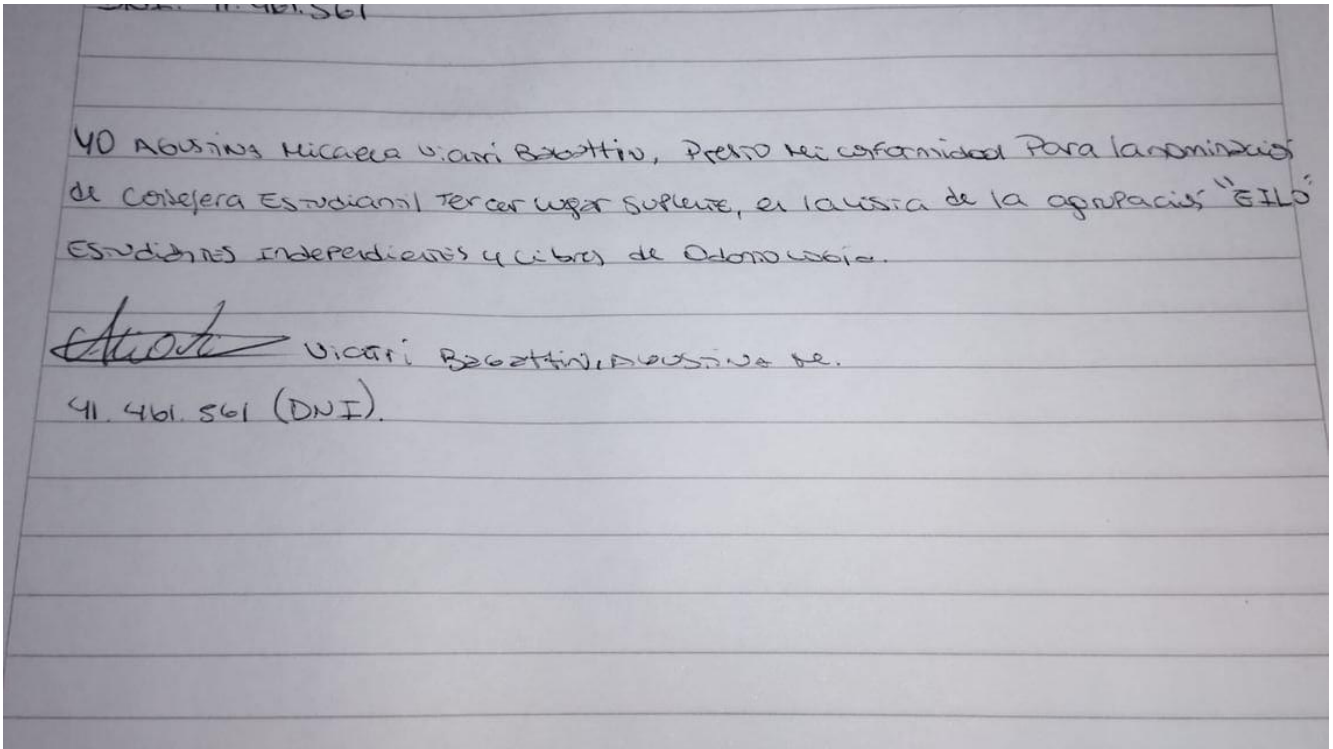 41.461.561
YO AGUSTINA Micaela Vicari Bagattin, Presto Mi conformidad Para la nominación
de Consejera Estudiantil Tercer lugar suplente, en la lista de la agrupación "EILO"
Estudiantes Independientes y Libres de Odontología.
Vicari Bagattin, Agustina M.
41.461.561 (DNI).